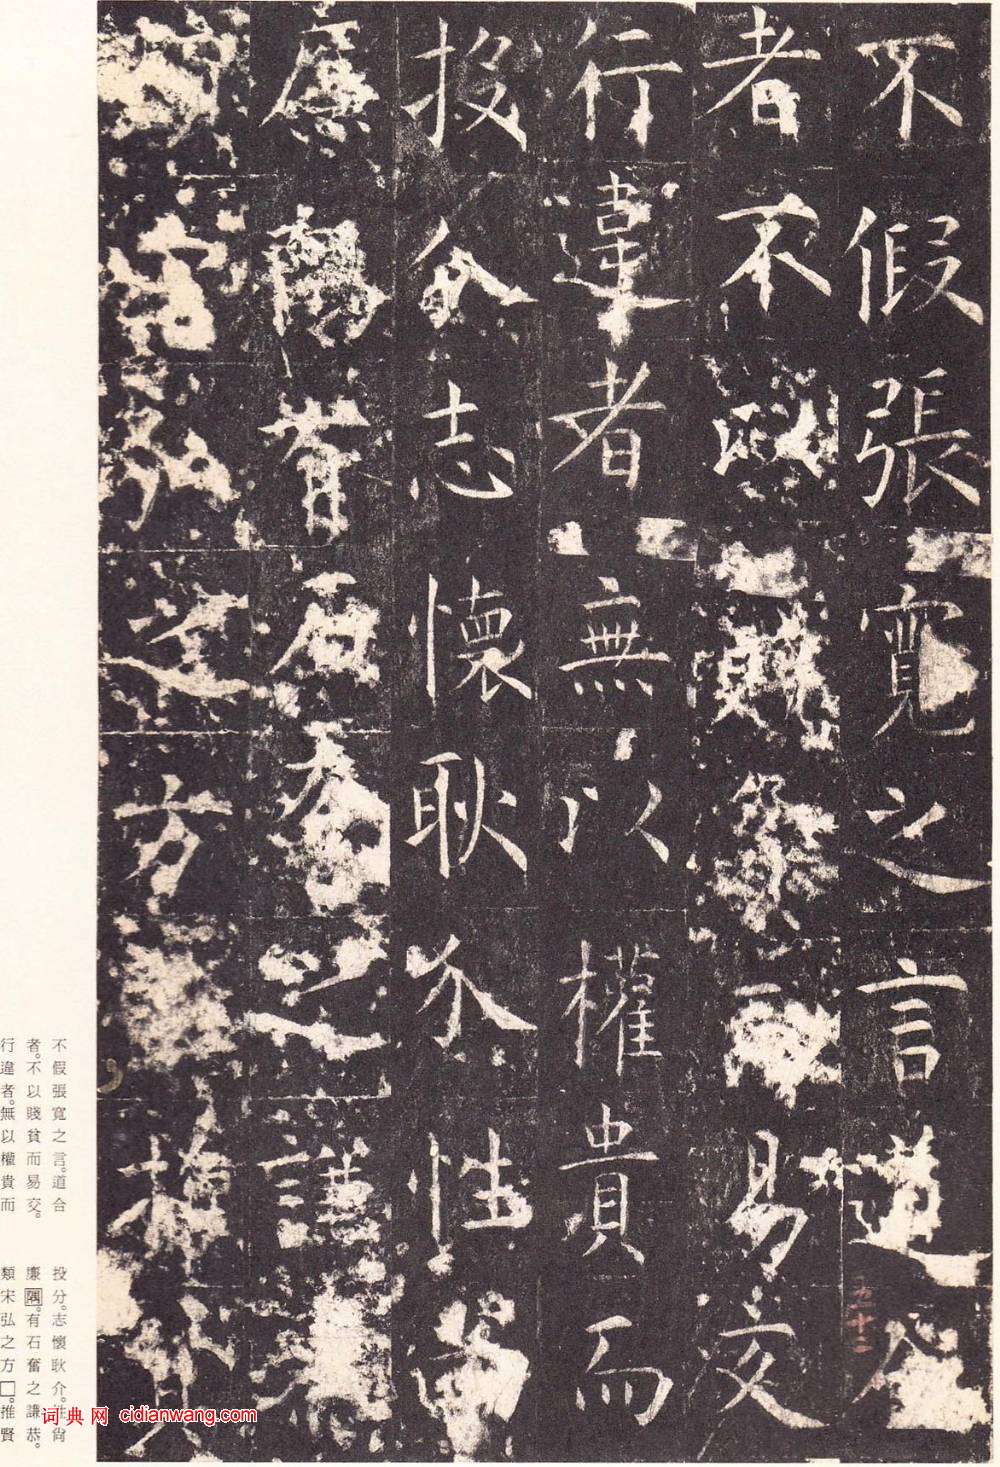 不假張寬之言道合
者不以賤貧而易交
行違者無以權貴而
投分志懷耿介性尚
廉隅有石奮之謙恭
類宋弘之方推賢
五十二
不假張寬之言。道合
者。不以賤貧而易交。
行違者。無以權貴而
投分。志懷耿介。性尚
廉隅。有石奮之謙恭。
類宋弘之方□。推賢
词典网 cidianwang.com